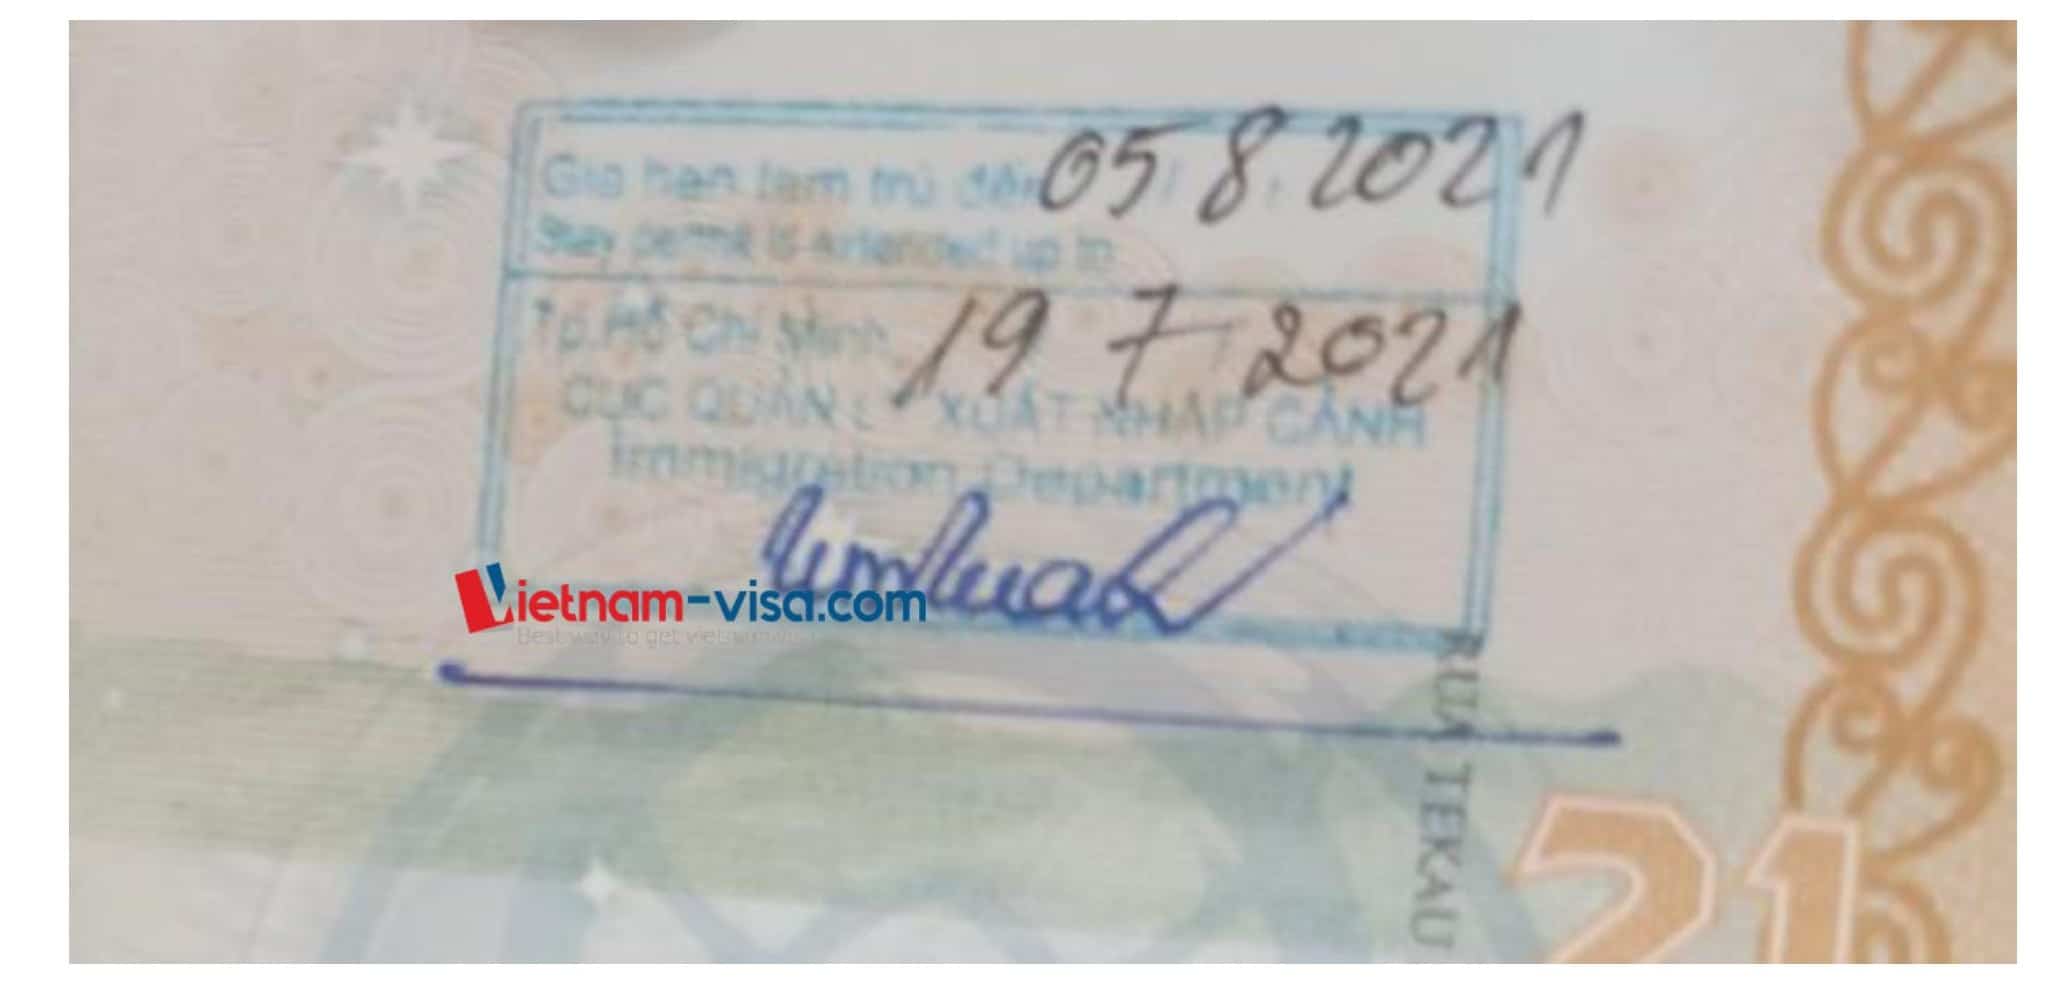 Gia hạn tạm trú đến 05 8 2021
Stay permit is extended up to
Tp.Hồ Chí Minh, 19 7 2021
CỤC QUẢN LÝ XUẤT NHẬP CẢNH
Immigration Department
Vietnam-visa.com
Best way to get vietnam
RUA TEKAU
21